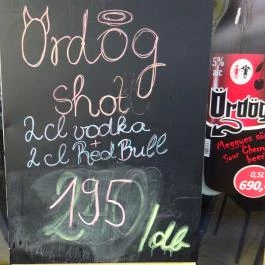 Ördög
shot
2cl vodka
+
2cl Red Bull
195
/db
5%
alc
Ördög
Meggyes sö
Sour Cherry
beer
0,5L
690,-